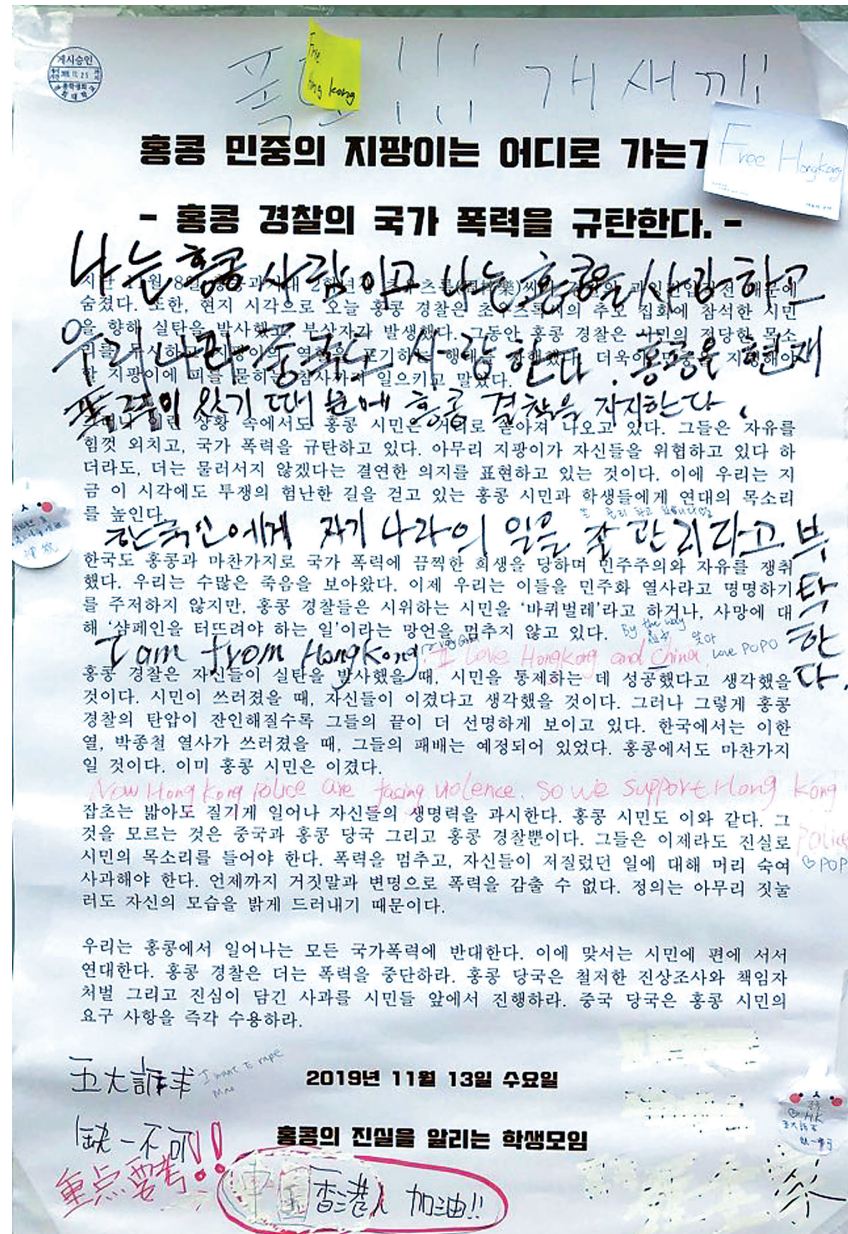 게시승인
Free
Hong Kong
개새끼!!
홍콩 민중의 지팡이는 어디로 가는가
Free HongKong
- 홍콩 경찰의 국가 폭력을 규탄한다. -
나는 홍콩 사람이고 나는 홍콩을 사랑하고
지난 11월 8일
숨졌다. 또한, 현지 시각으로 오늘 홍콩 경찰은 추모 집회에 참석한 시민
을 향해 실탄을 발사했고, 부상자가 발생했다. 그동안 홍콩 경찰은 시민의 정당한 목소
우리나라 중국도 사랑한다. 홍콩은 현재
할 지팡이에 피를 묻히는 참사까지 일으키고 말았다.
폭동이 있기 때문에 홍콩 경찰을 지지한다.
상황 속에서도 홍콩 시민은 거리로 쏟아져 나오고 있다. 그들은 자유를
힘껏 외치고, 국가 폭력을 규탄하고 있다. 아무리 지팡이가 자신들을 위협하고 있다 하
더라도, 더는 물러서지 않겠다는 결연한 의지를 표현하고 있는 것이다. 이에 우리는 지
금 이 시각에도 투쟁의 험난한 길을 걷고 있는 홍콩 시민과 학생들에게 연대의 목소리
를 높인다.
한국인에게 자기 나라의 일을 잘 관리라고 부탁한다.
한국도 홍콩과 마찬가지로 국가 폭력에 끔찍한 희생을 당하며 민주주의와 자유를 쟁취
했다. 우리는 수많은 죽음을 보아왔다. 이제 우리는 이들을 민주화 열사라고 명명하기
를 주저하지 않지만, 홍콩 경찰들은 시위하는 시민을 '바퀴벌레'라고 하거나, 사망에 대
해 '샴페인을 터뜨려야 하는 일'이라는 망언을 멈추지 않고 있다.
By the way
I am from HongKong. I love HongKong and China.
love POPO
홍콩 경찰은 자신들이 실탄을 발사했을 때, 시민을 통제하는 데 성공했다고 생각했을
것이다. 시민이 쓰러졌을 때, 자신들이 이겼다고 생각했을 것이다. 그러나 그렇게 홍콩
경찰의 탄압이 잔인해질수록 그들의 끝이 더 선명하게 보이고 있다. 한국에서는 이한
열, 박종철 열사가 쓰러졌을 때, 그들의 패배는 예정되어 있었다. 홍콩에서도 마찬가지
일 것이다. 이미 홍콩 시민은 이겼다.
Now Hong Kong police are facing violence. So we support Hong Kong
police
잡초는 밟아도 질기게 일어나 자신들의 생명력을 과시한다. 홍콩 시민도 이와 같다. 그
것을 모르는 것은 중국과 홍콩 당국 그리고 홍콩 경찰뿐이다. 그들은 이제라도 진실로
시민의 목소리를 들어야 한다. 폭력을 멈추고, 자신들이 저질렀던 일에 대해 머리 숙여
♡POPO
사과해야 한다. 언제까지 거짓말과 변명으로 폭력을 감출 수 없다. 정의는 아무리 짓눌
러도 자신의 모습을 밝게 드러내기 때문이다.
우리는 홍콩에서 일어나는 모든 국가폭력에 반대한다. 이에 맞서는 시민에 편에 서서
연대한다. 홍콩 경찰은 더는 폭력을 중단하라. 홍콩 당국은 철저한 진상조사와 책임자
처벌 그리고 진심이 담긴 사과를 시민들 앞에서 진행하라. 중국 당국은 홍콩 시민의
요구 사항을 즉각 수용하라.
五大訴求
I want to rape
2019년 11월 13일 수요일
缺一不可!!
홍콩의 진실을 알리는 학생모임
重点要考!!
中国香港人 加油!!
HK
五大訴求
缺一不可